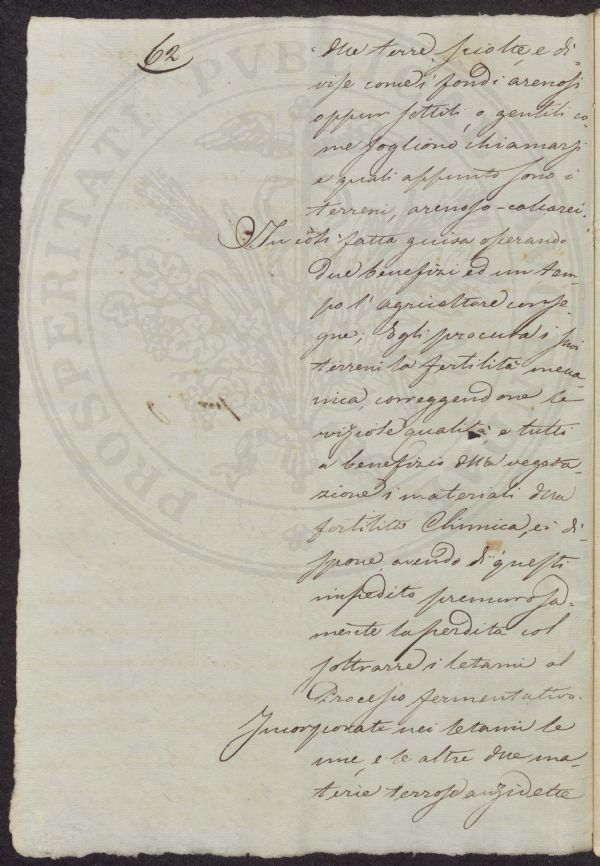 62
delle terre sciolte, e di-
vise come i fondi arenosi
oppur sottili, o gentili co-
me sogliono chiamarsi
e quali appunto sono i
terreni, arenoso-calcarei.
In così fatta guisa operando
due benefizi ad un tem-
po l'agricoltore conse-
gue; Egli procura i suoi
terreni la fertilità mecca-
nica, correggendone le
viziose qualità, e tutti
a benefizio della vegeta-
zione i materiali della
fertilità Chimica, ei di-
spone, avendo di questi
impedito premurosa-
mente la perdita col
sottrarre i letami al
Processo fermentativo.
Incorporate nei letami le
une, e le altre due ma-
terie terrose anzidette
PROSPERITATI PUBLICAE